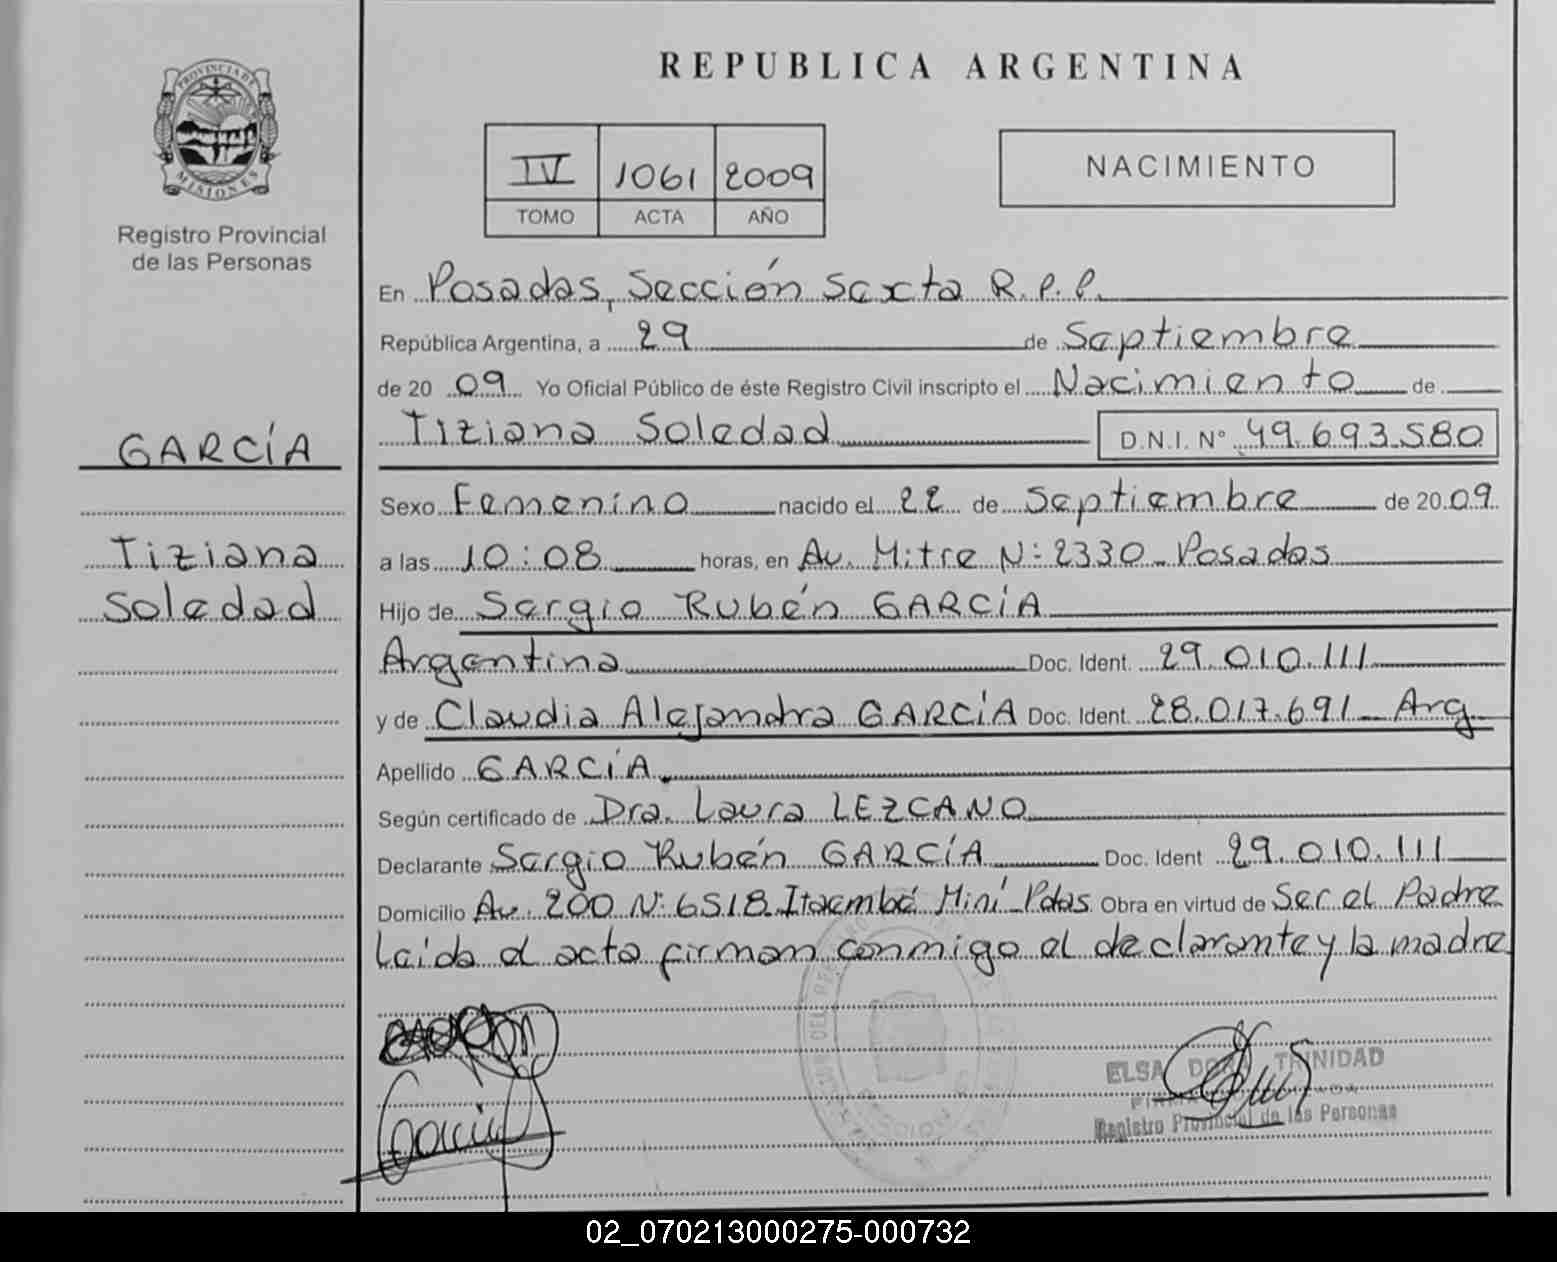 REPUBLICA ARGENTINA
PROVINCIA DE
MISIONES
Registro Provincial
de las Personas
IV 1061 2009
TOMO ACTA AÑO
NACIMIENTO
En Posadas, Sección Sexta R.P.P.
República Argentina, a 29 de Septiembre
de 20 09 Yo Oficial Público de éste Registro Civil inscripto el Nacimiento de
Tiziana Soledad D.N.I. N° 49.693.580
GARCÍA
Sexo Femenino nacido el 22 de Septiembre de 20 09
Tiziana
Soledad
a las 10:08 horas, en Av. Mitre N: 2330 - Posadas
Hijo de Sergio Rubén GARCÍA
Argentina Doc. Ident. 29.010.111
y de Claudia Alejandra GARCÍA Doc. Ident. 28.017.691 - Arg
Apellido GARCÍA.
Según certificado de Dra. Laura LEZCANO
Declarante Sergio Rubén GARCÍA Doc. Ident 29.010.111
Domicilio Av. 200 N: 6518 Itaembé Miní - Pdas Obra en virtud de Ser el Padre
Leída el acta firman conmigo el declarante y la madre
ELSA TRINIDAD
Registro Provincial de las Personas
02_070213000275-000732